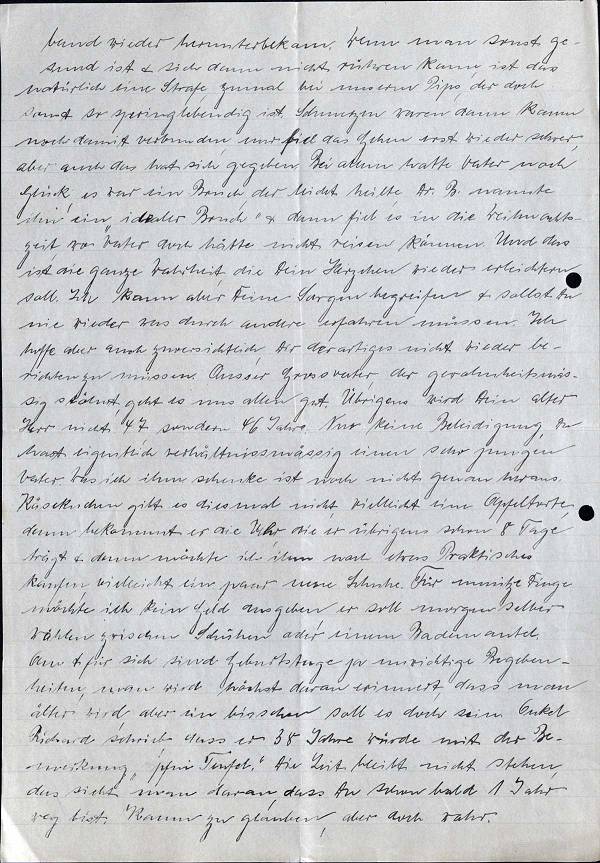 band wieder herunterbekam. Wenn man sonst ge-
sund ist & sich dann nicht rühren kann, ist das
natürlich eine Strafe zumal bei unserem Pips, der doch
sonst so springlebendig ist. Schmerzen waren dann kaum
noch damit verbunden nur fiel das Gehen erst wieder schwer,
aber auch das hat sich gegeben. Bei allem hatte Vater noch
Glück, es war ein Bruch der leicht heilte. Dr. B. nannte
ihn ein "idealer Bruch" & dann fiel es in die Weihnachts-
zeit wo Vater doch hätte nicht reisen können. Und das
ist die ganze Wahrheit die Dein Herzchen wieder erleichtern
soll. Ich kann aber Deine Sorgen begreifen & sollst Du
nie wieder was durch andere erfahren müssen. Ich
hoffe aber auch zuversichtlich Dir derartiges nicht wieder be-
richten zu müssen. Ausser Grossvater, der gewohnheitsmäs-
sig stöhnt geht es uns allen gut. Übrigens wird Dein alter
Herr nicht 47 sondern 46 Jahre. Nur keine Beleidigung, Du
hast eigentlich verhältnissmässig einen sehr jungen
Vater. Was ich ihm schenke ist noch nicht genau heraus.
Käsekuchen gibt es diesmal nicht vielleicht eine Apfeltorte,
dann bekommt er die Uhr die er übrigens schon 8 Tage
trägt & dann möchte ich ihm noch etwas Praktisches
kaufen vielleicht ein paar neue Schuhe. Für unnütze Dinge
möchte ich kein Geld ausgeben er soll morgen selber
wählen zwischen Schuhen oder einem Bademantel.
An & für sich sind Geburtstage ja unwichtige Begeben-
heiten, man wird höchst daran erinnert, dass man
älter wird aber ein bisschen soll es doch sein. Onkel
Richard schrieb dass er 38 Jahre würde mit der Be-
merkung "pfui Teufel." Die Zeit bleibt nicht stehen,
das sieht man daran dass Du schon bald 1 Jahr
weg bist. Kaum zu glauben, aber doch wahr.